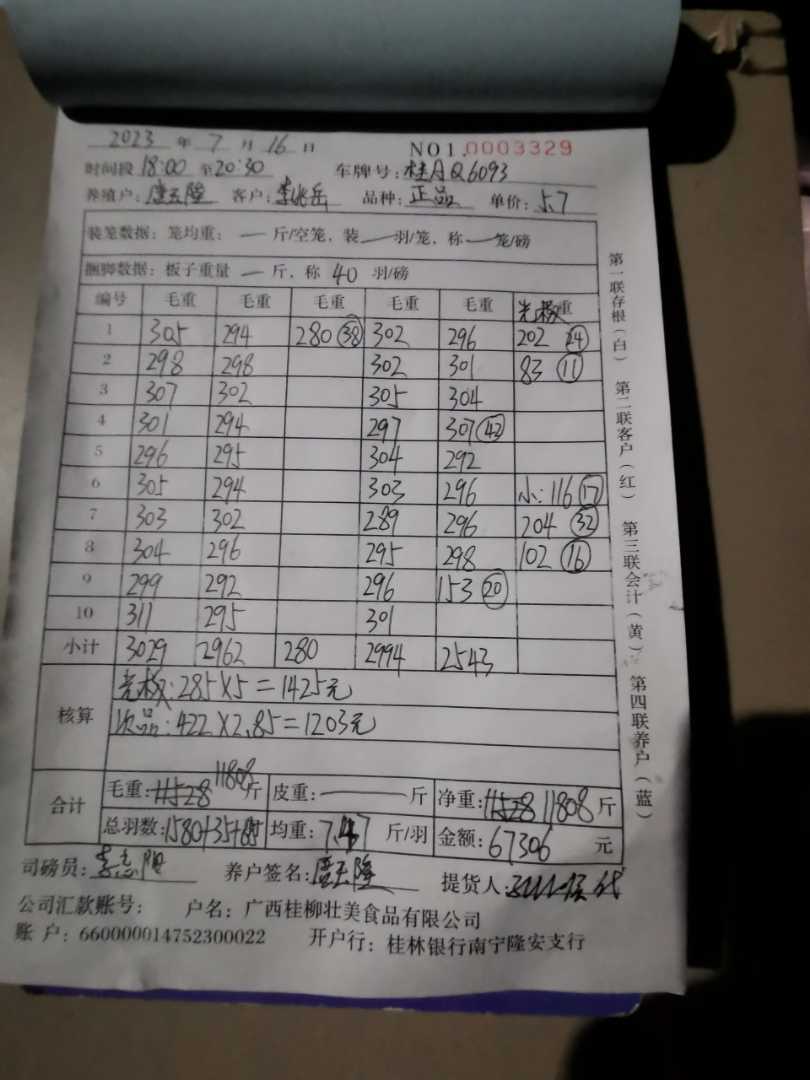 2023 年 7 月 16 日 NO1.0003329
时间段 18:00 至 20:30 车牌号: 桂AQ6093
养殖户: 客户: 李兆岳 品种: 正品 单价: 5.7
装笼数据: 笼均重: — 斤/空笼, 装 — 羽/笼, 称 — 笼/磅
捆脚数据: 板子重量 — 斤, 称 40 羽/磅
编号 毛重 毛重 毛重 毛重 毛重 重
1 305 294 280 (38) 302 296 202 (24)
2 298 298 302 301 83 (11)
3 307 302 305 304
4 301 294 297 307 (42)
5 296 295 304 292
6 305 294 303 296 小: 116 (17)
7 303 302 289 296 204 (32)
8 304 296 295 298 102 (16)
9 299 292 296 153 (20)
10 311 295 301
小计 3029 2962 280 2994 2543
核算
: 285×5=1425元
次品: 422×2.85=1203元
合计
毛重: 11528 11808 斤 皮重: — 斤 净重: 11528 11808 斤
总羽数: 1580+35+65 均重: 7.47 斤/羽 金额: 67306 元
司磅员: 李志阳 养户签名: 提货人: 代
公司汇款账号: 户名: 广西桂柳壮美食品有限公司
账 户: 660000014752300022 开户行: 桂林银行南宁隆安支行
第一联存根(白) 第二联客户(红) 第三联会计(黄) 第四联养户(蓝)